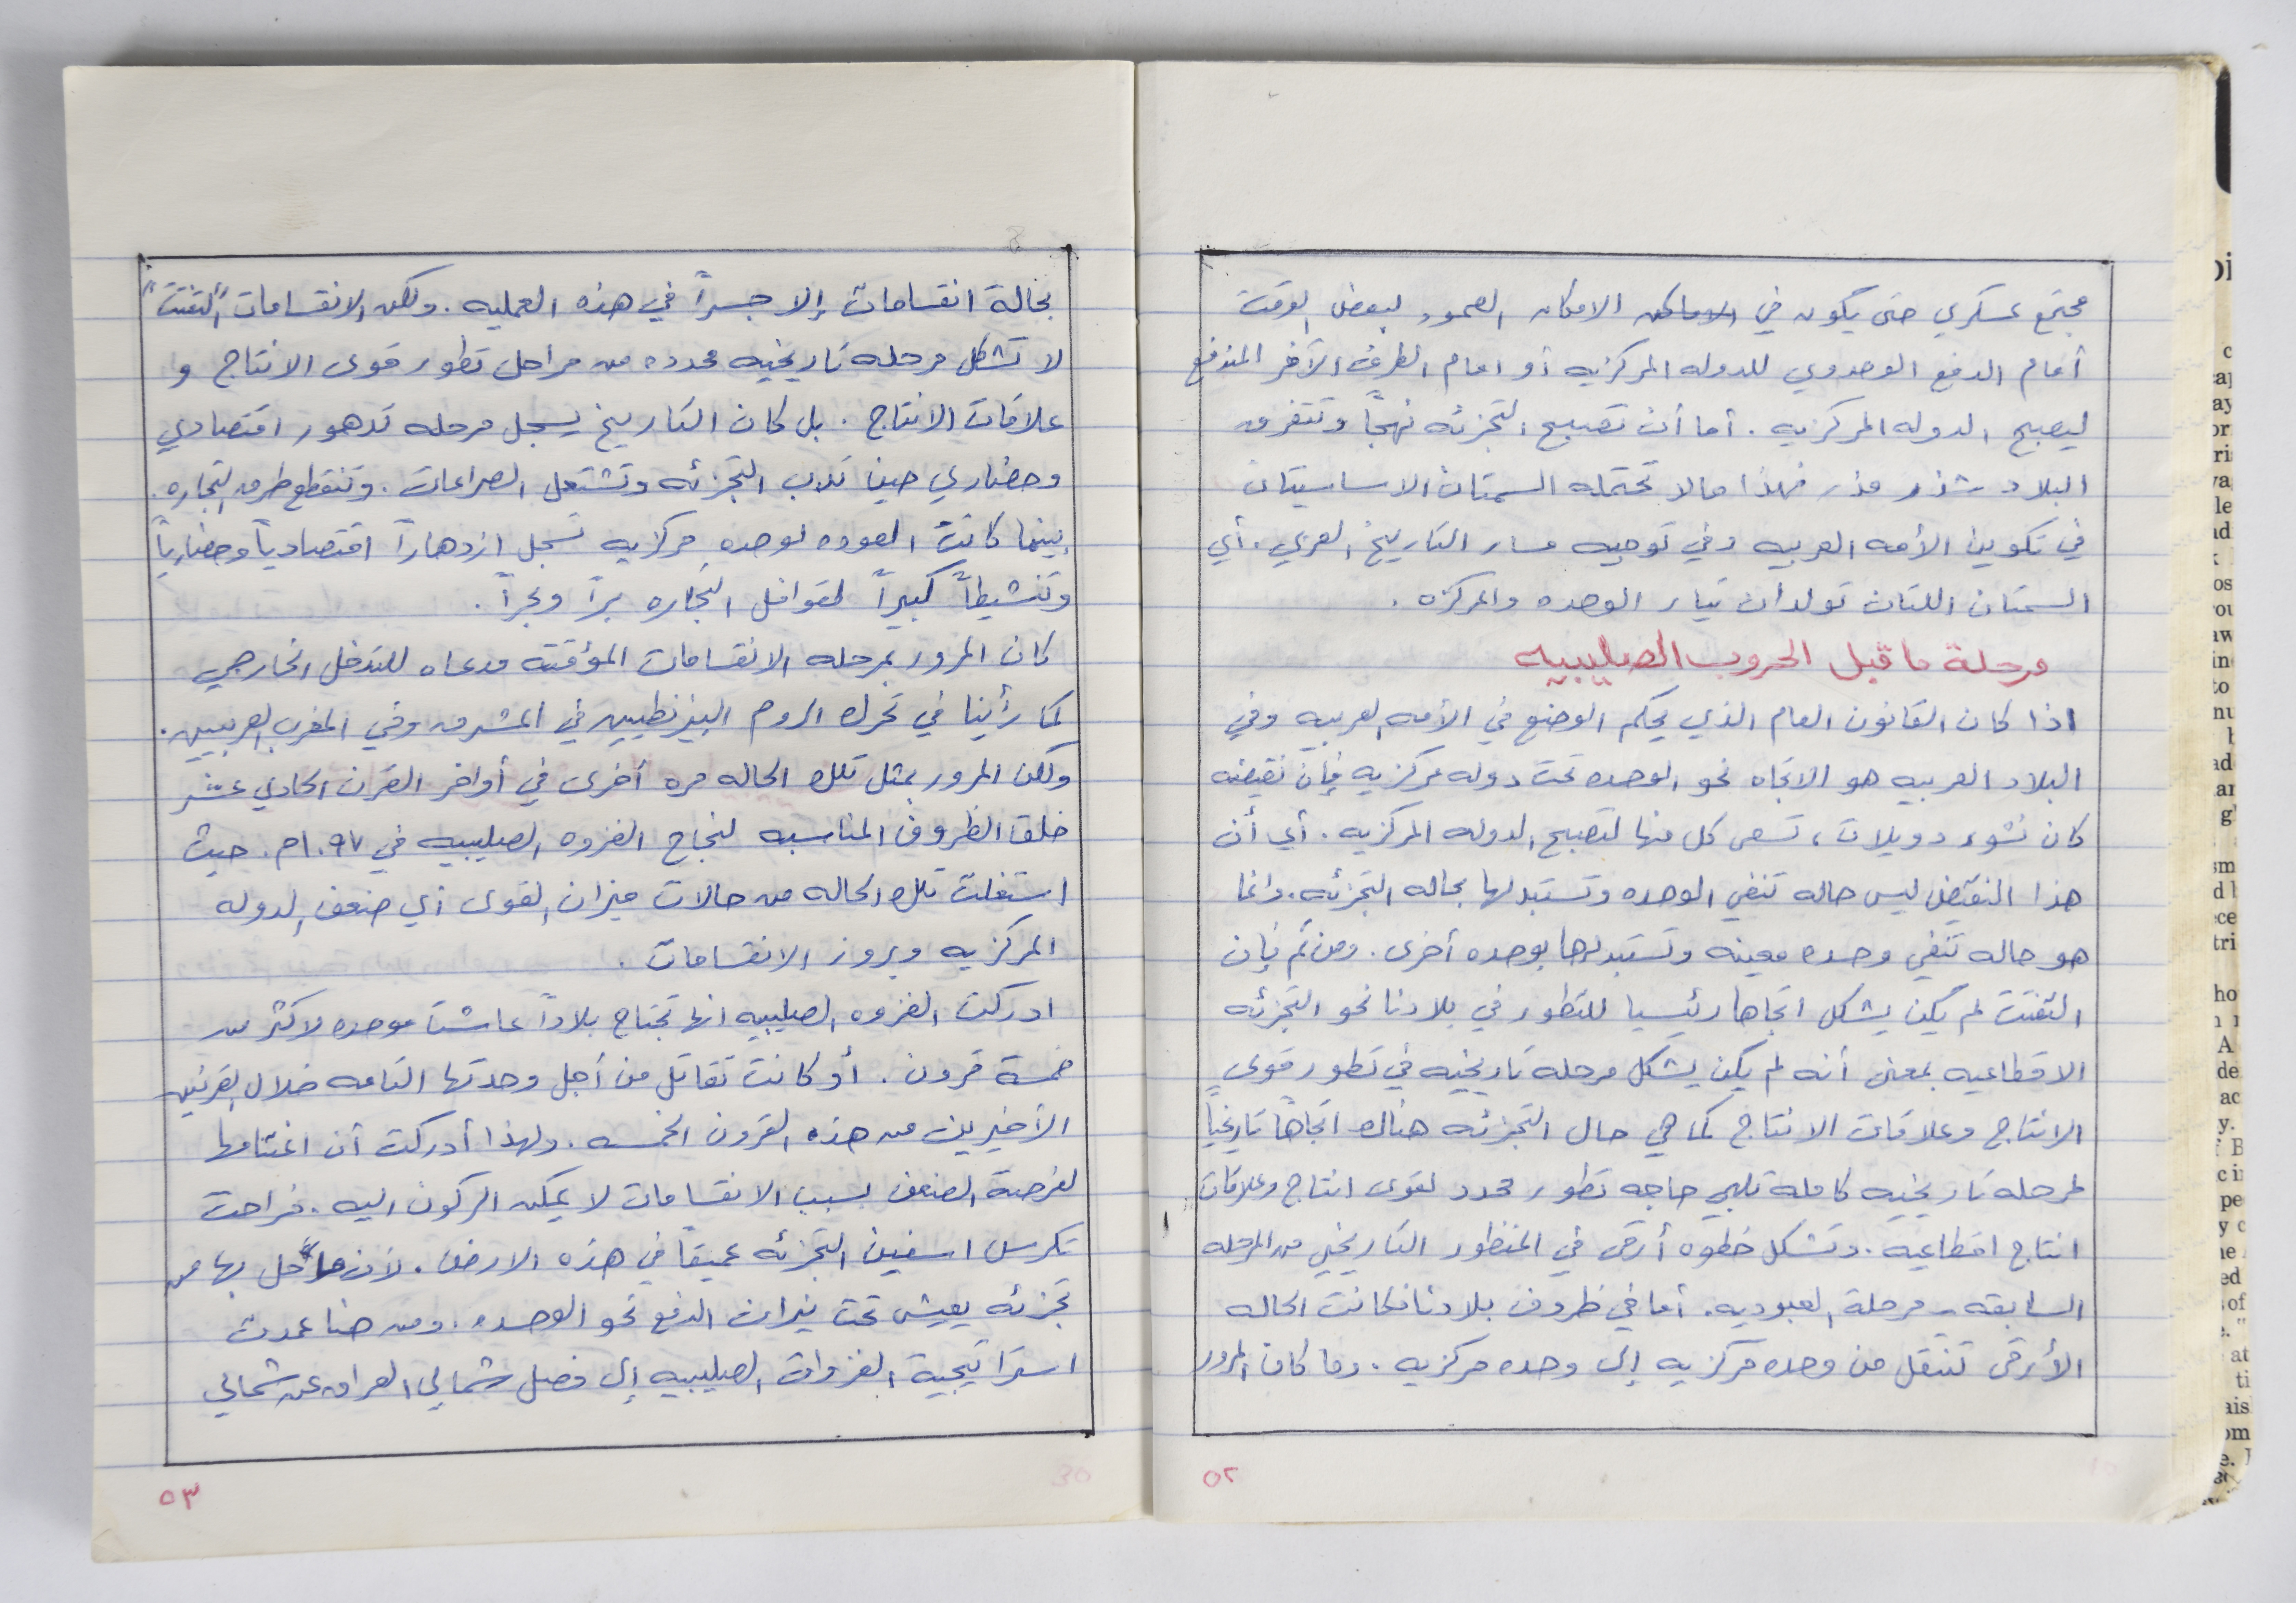 مجتمع عسكري حتى يكون في الاماكن الامكان الصمود لبعض الوقت
أمام الدفع الوحدوي للدوله المركزيه أو امام الطرف الآخر المندفع
ليصبح الدوله المركزيه . أما أن تصبح التجزئه نهجاً وتتفرق
البلاد شذر مذر فهذا مالا تحتمله السمتان الاساسيتان
في تكوين الأمه العربيه وفي توجيه مسار التاريخ العربي . أي
السمتان اللتان تولدان تيار الوحده والمركزه .
مرحلة ما قبل الحروب الصليبيه
اذا كان القانون العام الذي يحكم الوضع في الأمه العربيه وفي
البلاد العربيه هو الاتجاه نحو الوحده تحت دوله مركزيه فإن نقيضه
كان نشوء دويلات ، تسعى كل منها لتصبح الدوله المركزيه . أي أن
هذا النقيض ليس حاله تنفي الوحده وتستبدلها بحاله التجزئه . وانما
هو حاله تنفي وحده معينه وتستبدلها بوحده أخرى . ومن ثم فإن
التفتت لم يكن يشكل اتجاها رئيسيا للتطور في بلادنا نحو التجزئه
الاقطاعيه بمعنى أنه لم يكن يشكل مرحله تاريخيه في تطور قوى
الانتاج وعلاقات الانتاج كما هي حال التجزئه هناك اتجاهاً تاريخياً
لمرحله تاريخيه كامله تلبي حاجه تطور محدد لقوى انتاج وعلاقات
انتاج اقطاعيه . وتشكل خطوه أرقى في المنظور التاريخي من المرحله
السابقه - مرحلة العبوديه . أما في ظروف بلادنا فكانت الحاله
الأرقى تنتقل من وحده مركزيه إلى وحده مركزيه . وما كان المرور
٥٢
بحالة انقسامات إلا جسراً في هذه العمليه . ولكن الانقسامات "التفتت"
لا تشكل مرحله تاريخيه محدده من مراحل تطور قوى الانتاج و
علاقات الانتاج . بل كان التاريخ يسجل مرحله تدهور اقتصادي
وحضاري حين تدب التجزئه وتشتعل الصراعات . وتنقطع طرق التجاره .
بينما كانت العوده لوحده مركزيه تسجل ازدهاراً اقتصادياً وحضارياً
وتنشيطاً كبيراً لقوافل التجاره براً وبحراً .
كان المرور بمرحله الانقسامات المؤقته مدعاه للتدخل الخارجي
كما رأينا في تحرك الروم البيزنطيين في المشرق وفي المغرب العربيين .
ولكن المرور بمثل تلك الحاله مره أخرى في أواخر القرن الحادي عشر
خلق الظروف المناسبه لنجاح الغزوه الصليبيه في ١٠٩٧م . حيث
استغلت تلك الحاله من حالات ميزان القوى أي ضعف الدوله
المركزيه وبروز الانقسامات .
ادركت الغزوه الصليبيه انها تجتاح بلاداً عاشت موحده لاكثر من
خمسة قرون . أو كانت تقاتل من أجل وحدتها التامه خلال القرنين
الأخيرين من هذه القرون الخمسه . ولهذا أدركت أن اغتنامها
لفرصة الضعف بسبب الانقسامات لا يمكن الركون اليه . فراحت
تكرس اسفين التجزئه عميقاً في هذه الارض . لأن ما حل بها من
تجزئه يعيش تحت نيران الدفع نحو الوحده . ومن هنا عمدت
استراتيجية الغزوات الصليبيه إلى فصل شمالي العراق عن شمالي
٥٣